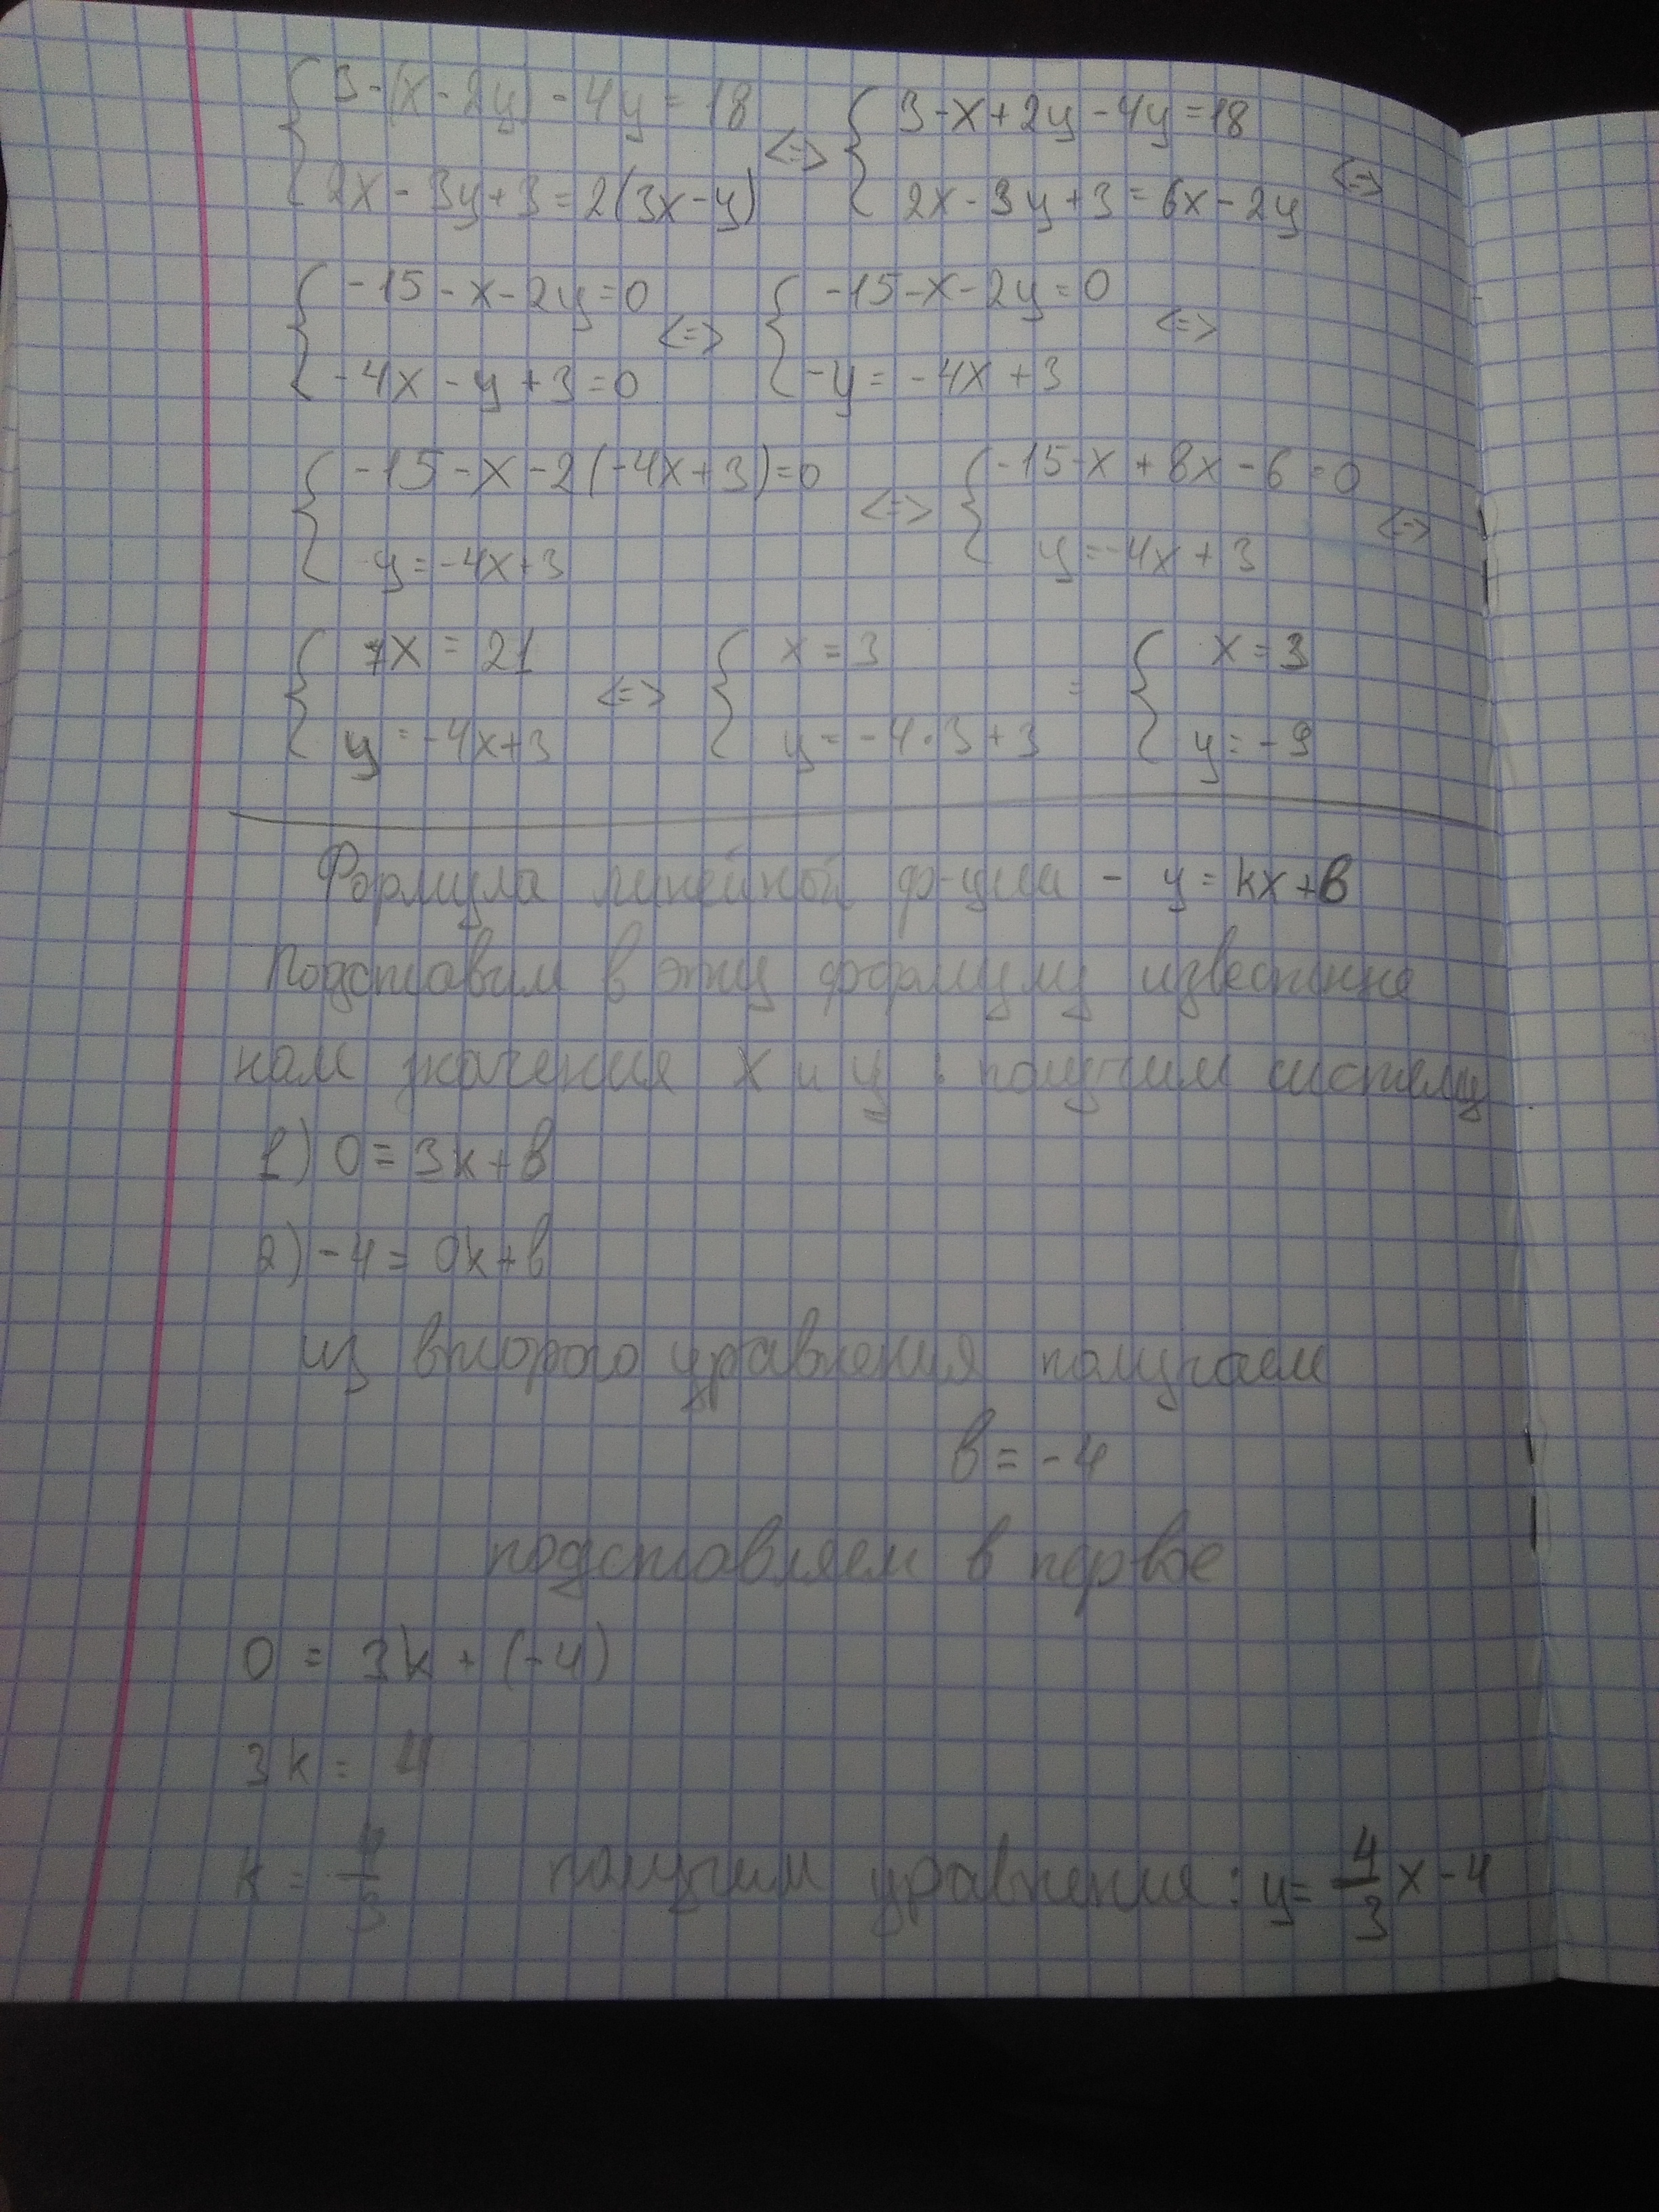 { 3-(x-2y)-4y=18 <=> { 3-x+2y-4y=18 <=>
2x-3y+3=2(3x-y) 2x-3y+3=6x-2y
{ -15-x-2y=0 <=> { -15-x-2y=0 <=>
-4x-y+3=0 -y=-4x+3
{ -15-x-2(-4x+3)=0 <=> { -15-x+8x-6=0 <=>
y=-4x+3 y=-4x+3
{ 7x=21 <=> { x=3 = { x=3
y=-4x+3 y=-4·3+3 y=-9
Формула линейной ф-ции - y=kx+b
Подставим в эту формулу известные
нам значения x и y: получим систему
1) 0=3k+b
2) -4=0k+b
из второго уравнения получаем
b=-4
подставляем в первое
0=3k+(-4)
3k=4
k=4/3 получим уравнения: y=4/3x-4